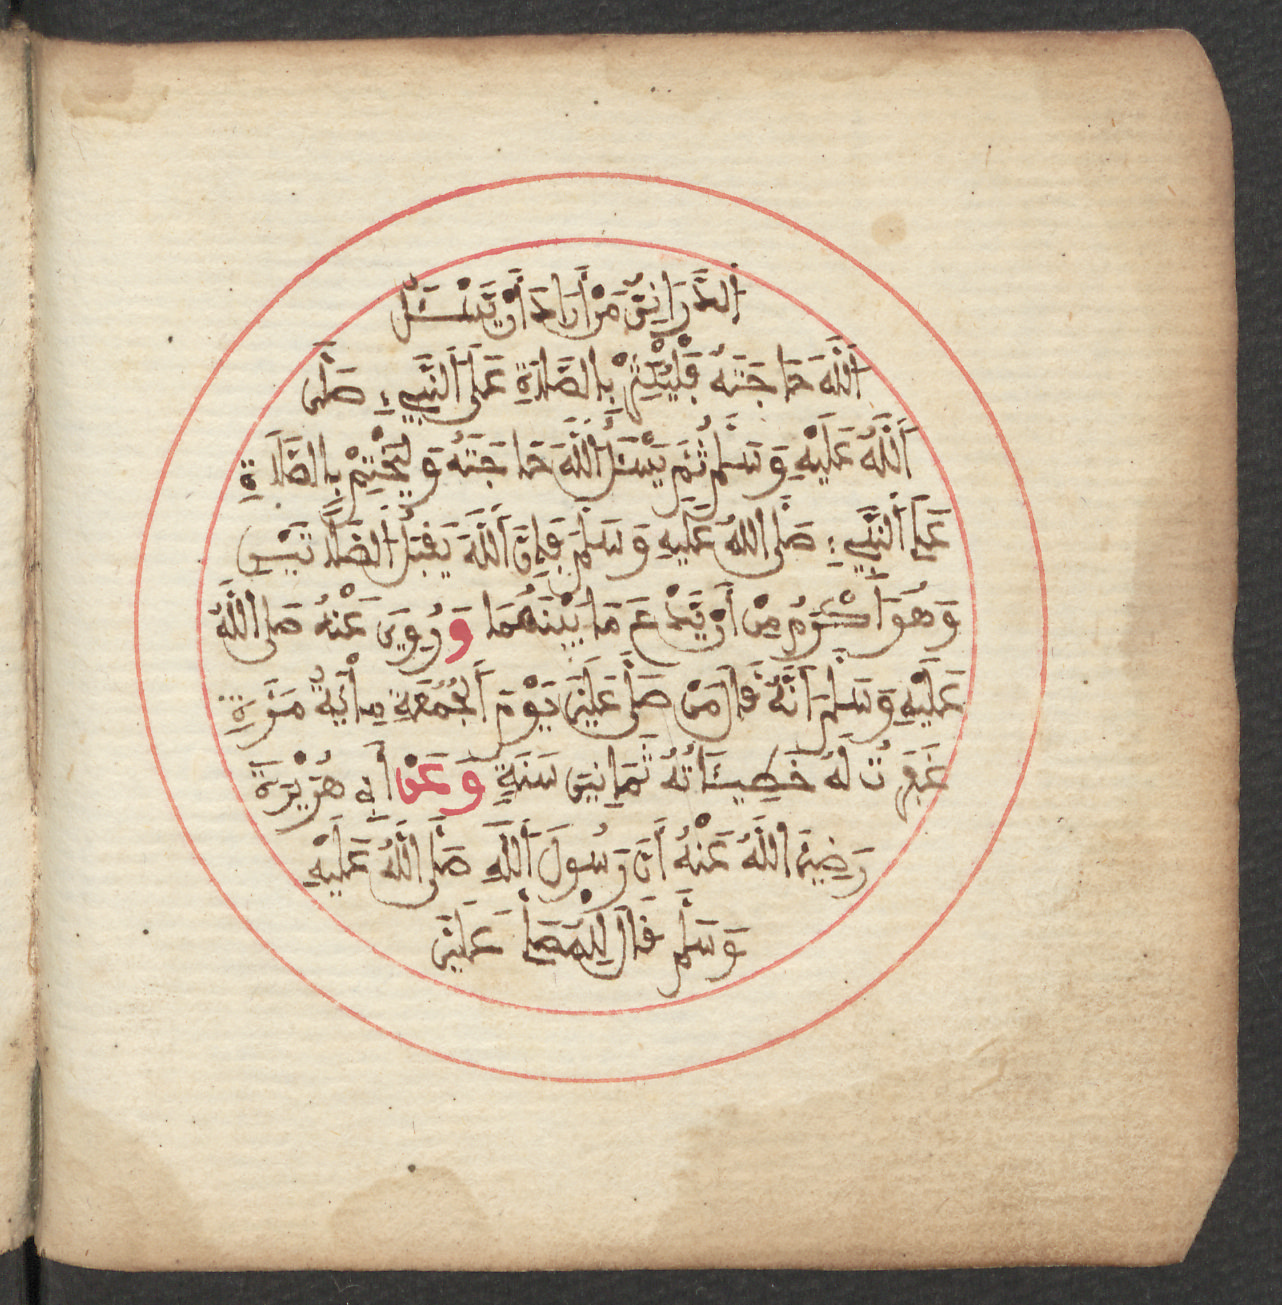 الدَّرَانِيُّ مَنْ أَرَادَ أَنْ يَسْـَٔلَ
اَللَّهَ حَاجَتَهُ فَلْيُكْثِرْ بِالصَّلَاةِ عَلَى اَلنَّبِيءِ صَلَّى
اَللَّهُ عَلَيْهِ وَسَلَّمَ ثُمَّ يَسْـَٔلُ اَللَّهَ حَاجَتَهُ وَلْيَخْتِمْ بِالصَّلَاةِ
عَلَى اَلنَّبِيءِ صَلَّى اللهُ عَلَيْهِ وَسَلَّمَ فَإِنَّ اَللَّهَ يَقْبَلُ اَلصَّلَاتَيْنِ
وَهُوَ أَكْرَمُ مِنْ أَنْ يَّدَعَ مَا بَيْنَهُمَا وَرُوِيَ عَنْهُ صَلَّى اللَّهُ
عَلَيْهِ وَسَلَّمَ أَنَّهُ قَالَ مَنْ صَلَّى عَلَيَّ يَوْمَ اَلْجُمُعَةِ مِائَةَ مَرَّةٍ
غُفِرَتْ لَهُ خَطِيئَاتُهُ ثَمَانِينَ سَنَةٍ وَعَنْ أَبِي هُرَيْرَةَ
رَضِيَ اللَّهُ عَنْهُ أَنَّ رَسُولَ اَللَّهِ صَلَّى اَللَّهُ عَلَيْهِ
وَسَلَّمَ قَالَ لِلْمُصَلِّي عَلَيَّ